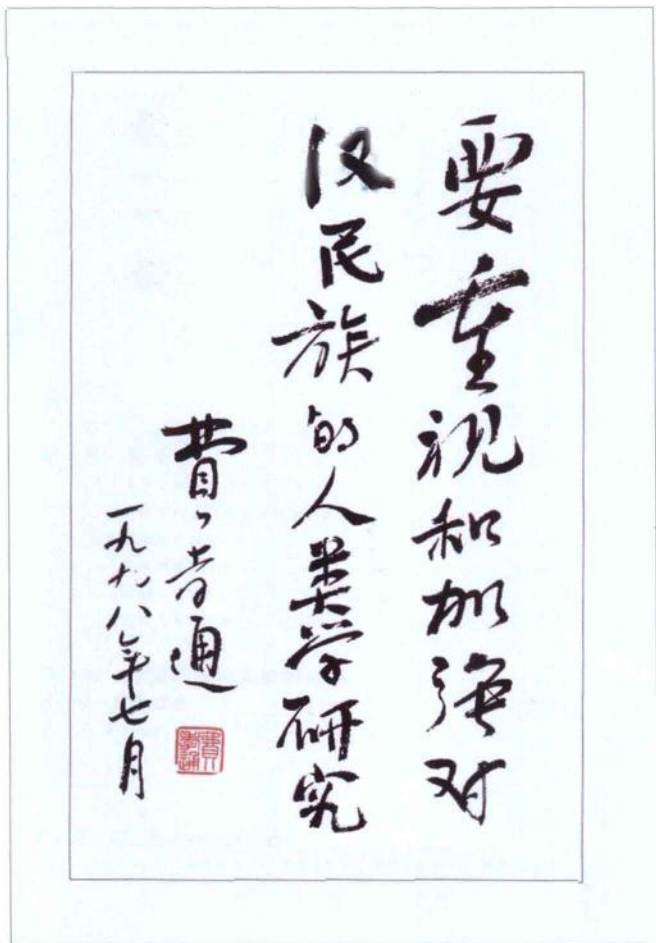 要重视和加强对
汉民族的人类学研究
费孝通
一九九八年七月